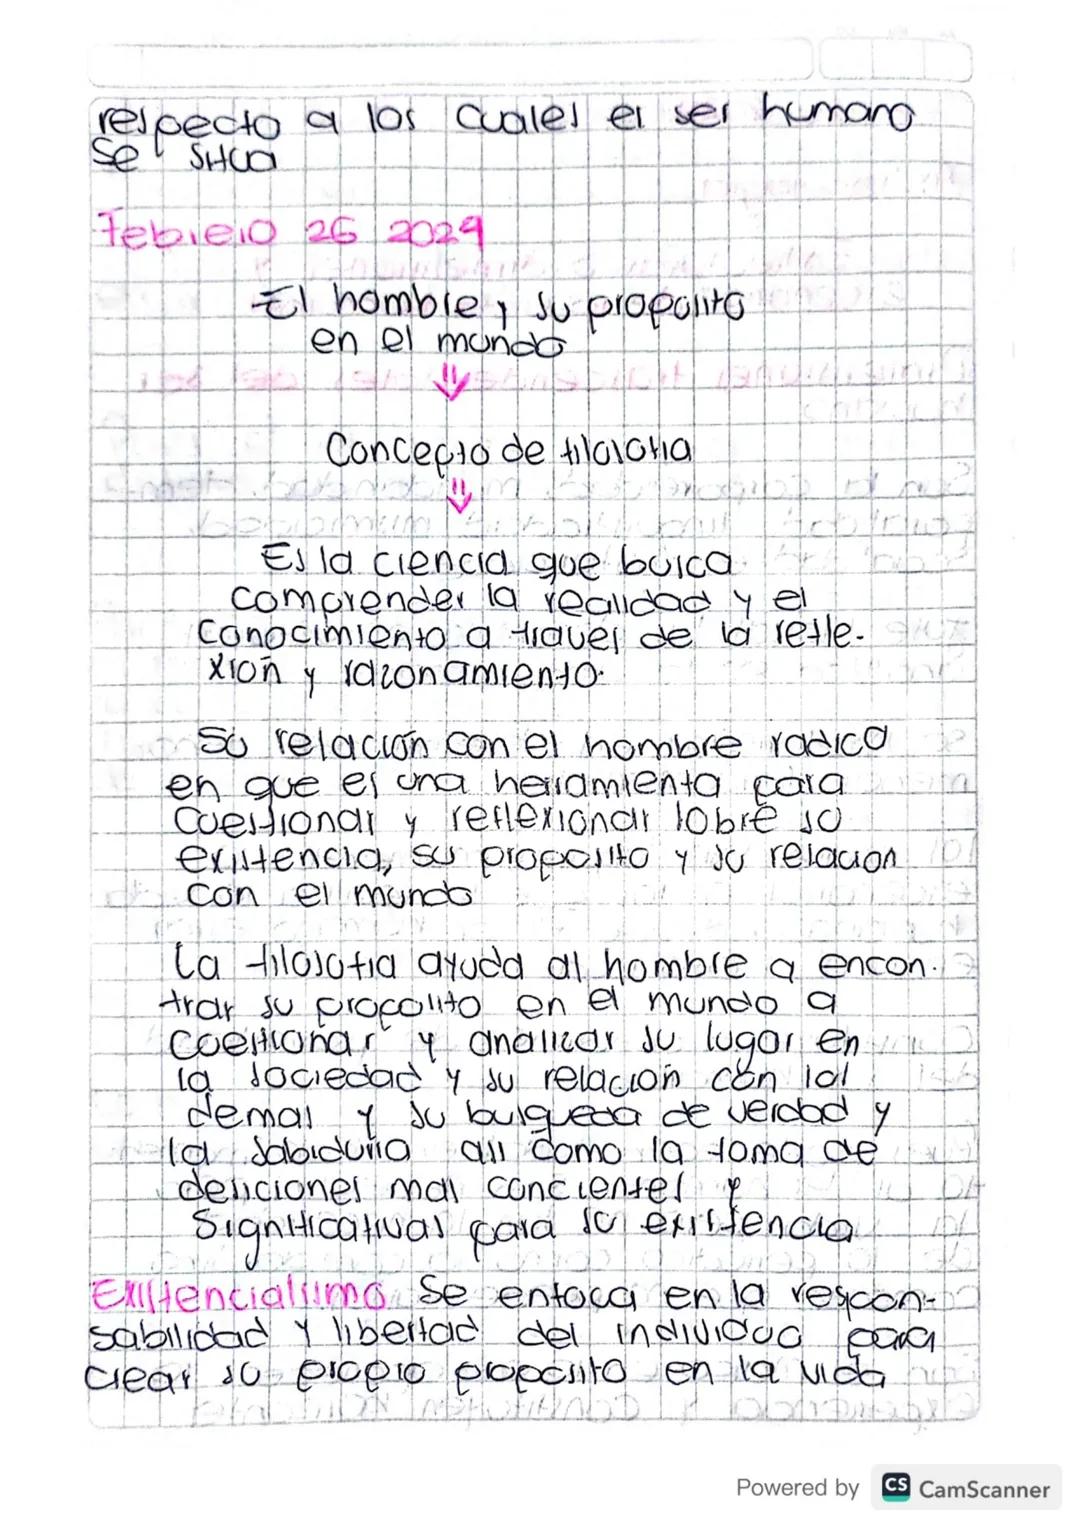 respecto a los cuales el ser humano
se situa
Febrero 26 2024
El hombre y su proposito
en el mundo
Concepto de filosofia
Es la ciencia que busca
comprender la realidad y el
conocimiento a traves de la refle-
xión y razonamiento.
Su relación con el hombre radica
en que es una herramienta para
cuestionar y reflexionar sobre su
existencia, su proposito y su relacion
con el mundo
La filosofia ayuda al hombre a encon-
trar su proposito en el mundo a
cuestionar y analizar su lugar en
la sociedad y su relación con los
demas y su busqueda de verdad y
la sabiduria asi como la toma de
desiciones mas concientes y
significativas para su existencia
Existencialismo Se enfoca en la respon-
sabilidad y libertad del individuo para
crear su propio proposito en la vida
Powered by CS CamScanner